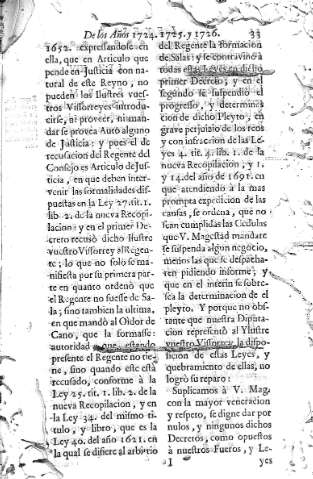 De los Años 1724. 1725. y 1726. 33
1652. expressandose en
ella, que en Articulo que
pende en Justicia con na-
tural de este Reyno, no
pueden los Ilustres vues-
tros Vissorreyes introdu-
cirse, ni proveer, ni man-
dar se provea Auto alguno
de Justicia: y pues el de
recusacion del Regente del
Consejo es Articulo de Jus-
ticia, en que deben inter-
venir las formalidades dis-
puestas en la Ley 27. tit. 1.
lib. 2. de la nueva Recopi-
lacion: y en el primer De-
creto recusò dicho Ilustre
vuestro Virrey al Regen-
te; lo que no solo se ma-
nifiesta por su primera par-
te en quanto ordenò que
el Regente no fuesse de Sa-
la; sino tambien la ultima,
en que mandò al Oidor de
Cano, que la formasse:
autoridad que, estando
presente el Regente no tie-
ne, sino quando este està
recusado, conforme à la
Ley 25. tit. 1. lib. 2. de la
nueva Recopilacion, y en
la Ley 34. del mismo ti-
tulo, y libro, que es la
Ley 40. del año 1621. en
la qual se difiere al arbitrio
del Regente la formacion
de Salas: y se contravino à
todas estas Leyes en dicho
primer Decreto; y en el
segundo se suspendió el
progresso, y determina
cion de dicho Pleyto, en
grave perjuizio de los reos
y con infraccion de las Le-
yes 4. tit. 4. lib. 1. de la
nueva Recopilacion, y 1.
y 14. del año de 1691. en
que atendiendo à la mas
prompta expedicion de las
causas, se ordena, què no
sean cumplidas las Cedulas
que V. Magestad mandare
se suspenda algun negocio,
menos las que se despacha-
ren pidiendo informe; y
que en el interin se sobre-
sea la determinacion de el
pleyto. Y porque no obs-
tante que nuestra Diputa-
cion representò al Ylustre
vuestro Vissorrey, la dispo-
sicion de estas Leyes, y
quebramiento de ellas, no
logrò su reparo:
Suplicamos à V. Mag.
con la mayor veneracion
y respeto, se digne dar por
nulos, y ningunos dichos
Decretos, como opuestos
à nuestros Fueros, y Le-
I yes